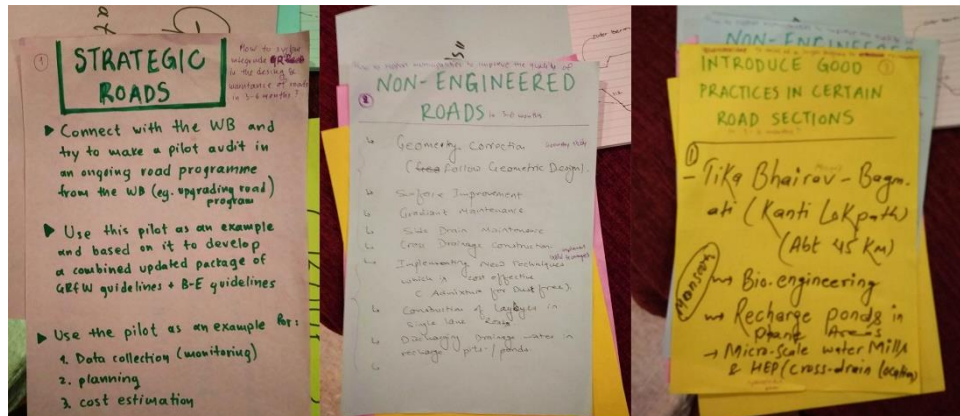 1
STRATEGIC
ROADS
How to
integrate
in the
of roads
in 3-6 months?
▶ Connect with the WB and
try to make a pilot audit in
an ongoing road programme
from the WB (eg. upgrading road
program)
▶ Use this pilot as an example
and based on it to develop
a combined updated package of
GRfW guidelines + B-E guidelines
▶ Use the pilot as an example for:
1. Data collection (monitoring)
2. planning
3. cost estimation
NON-ENGINEERED
ROADS in 3-6 months
↳ Geometry Correction
(Follow Geometric Design).
↳ Surface Improvement
↳ Gradient Maintenance
↳ Side Drain Maintenance
↳ Cross Drainage Construction
↳ Implementing new Techniques
which is cost effective
( Admixture for Dust free).
↳ Construction of Laybyes in
Single lane Road
↳ Discharging Drainage water in
recharge pits / ponds
↳
NON-ENGINEERED
INTRODUCE GOOD
PRACTICES IN CERTAIN
ROAD SECTIONS
1
- Tika Bhairav - Bagm-
ati (Kanti Lokpath)
(Abt 45 KM)
Bio-engineering
Recharge ponds in
Areas
→ Micro-scale water Mills
& HEP (cross-drain location)